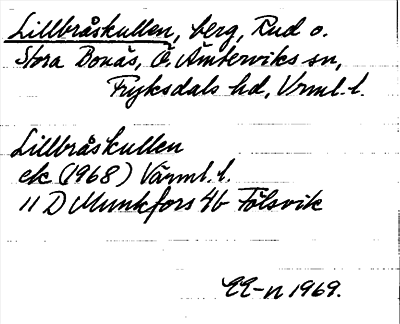 Lillbråskullen, berg, Rud o.
Stora Bonäs, Ö. Ämterviks sn,
Fryksdals hd, Vrml. l.
Lillbråskullen
ek (1968) Värml. l.
11 D Munkfors 4b Fölsvik
EE-n 1969.